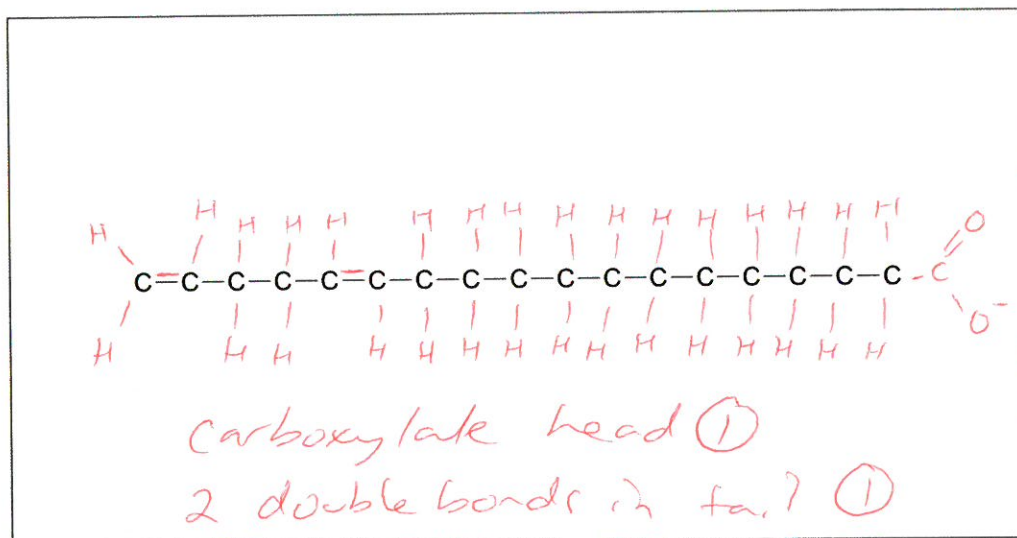 H H H H H H H H H H H H H H H H O
C=C-C-C-C=C-C-C-C-C-C-C-C-C-C-C-C-C
H H H H H H H H H H H H H H H O⁻
carboxylate head ①
2 double bonds in tail ①